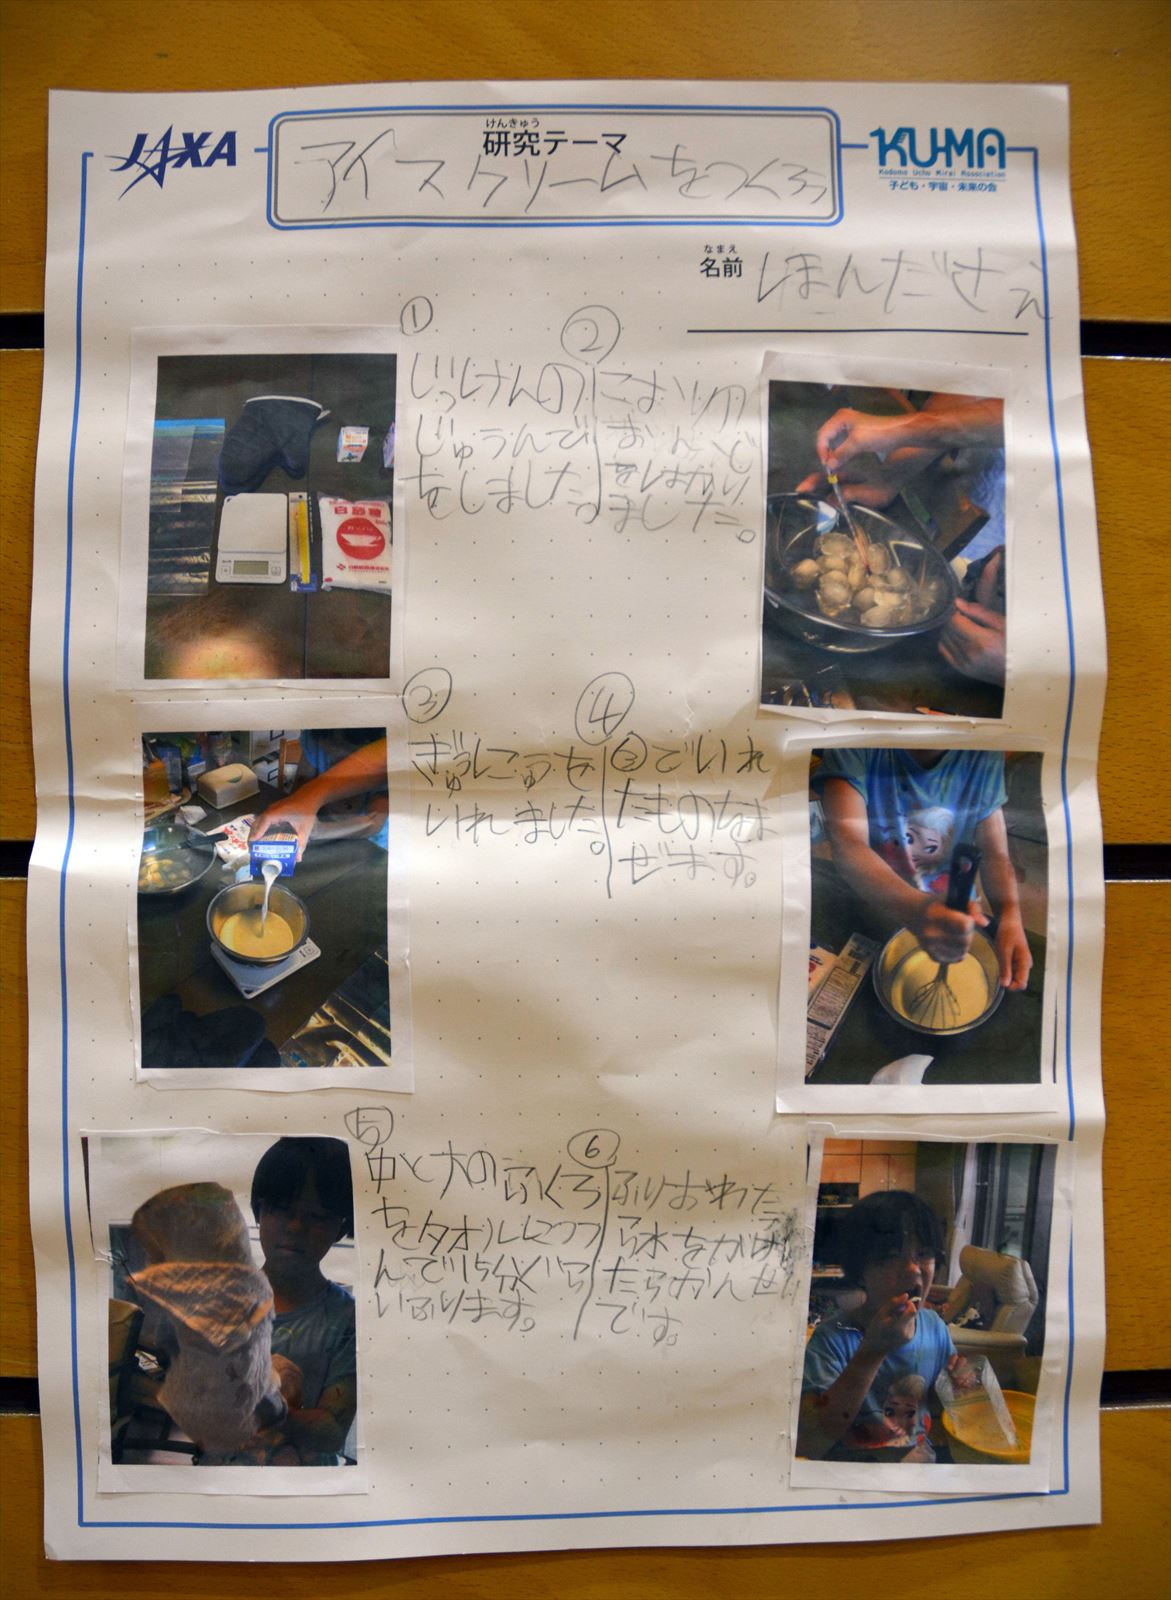 JAXA
けんきゅう
研究テーマ
アイスクリームをつくろう
KU-MA
Kodomo Uchu Mirai Association
子ども・宇宙・未来の会
なまえ
名前
ほんださえ
①
じっけんの
じゅうんで
をしました。
②
こおりの
おんど
をはかり
ました。
白砂糖
③
ぎゅうにゅうを
いれました。
④
③でいれ
たものなま
ぜます。
⑤
中と大のふくろ
をタオルにつつ
んで15分くら
いふります。
⑥
ふりおわた
ら水をかけ
たらかんせい
です。